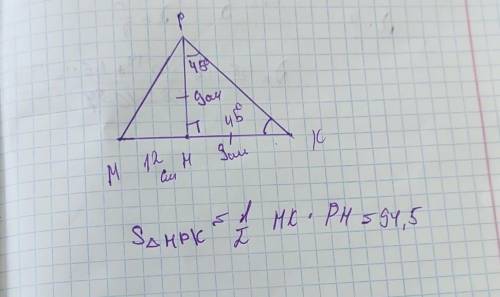 P
45°
9см
45°
M 12 см H 9см K
S△HPK = 1/2 HK · PH = 94,5